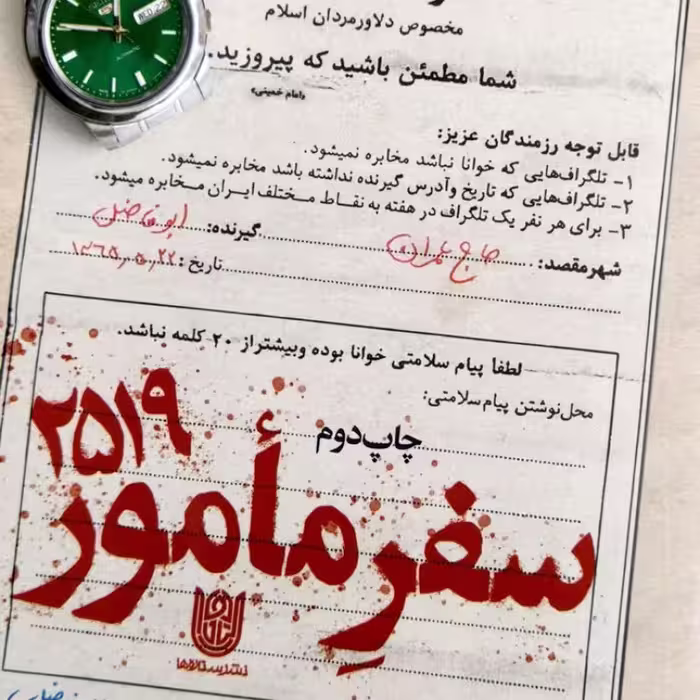 مخصوص دلاورمردان اسلام
شما مطمئن باشید که پیروزید.
«امام خمینی»
قابل توجه رزمندگان عزیز:
۱- تلگرافهایی که خوانا نباشد مخابره نمیشود.
۲- تلگرافهایی که تاریخ وآدرس گیرنده نداشته باشد مخابره نمیشود.
۳- برای هر نفر یک تلگراف در هفته به نقاط مختلف ایران مخابره میشود.
شهرمقصد: حاج عمران گیرنده: ابوفاضل
تاریخ: ۱۳۶۵,۵,۲۲
لطفا پیام سلامتی خوانا بوده وبیشتراز ۲۰ کلمه نباشد.
محل‌نوشتن پیام‌سلامتی:
چاپ دوم
سفرِ مأمور ۲۵۱۹
نشر ستاره‌ها
5
WED 22